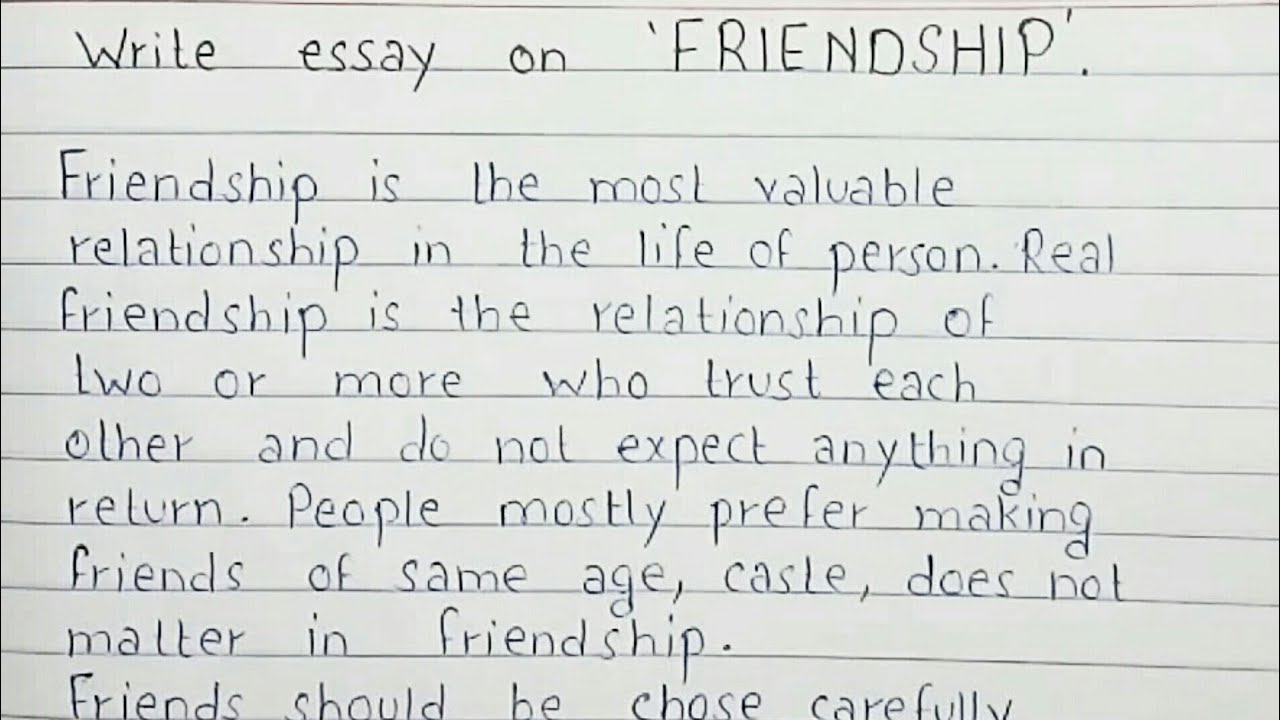 Write essay on 'FRIENDSHIP'.
Friendship is the most valuable
relationship in the life of person. Real
friendship is the relationship of
two or more who trust each
other and do not expect anything in
return. People mostly prefer making
friends of same age, caste, does not
matter in friendship.
Friends should be chose carefully